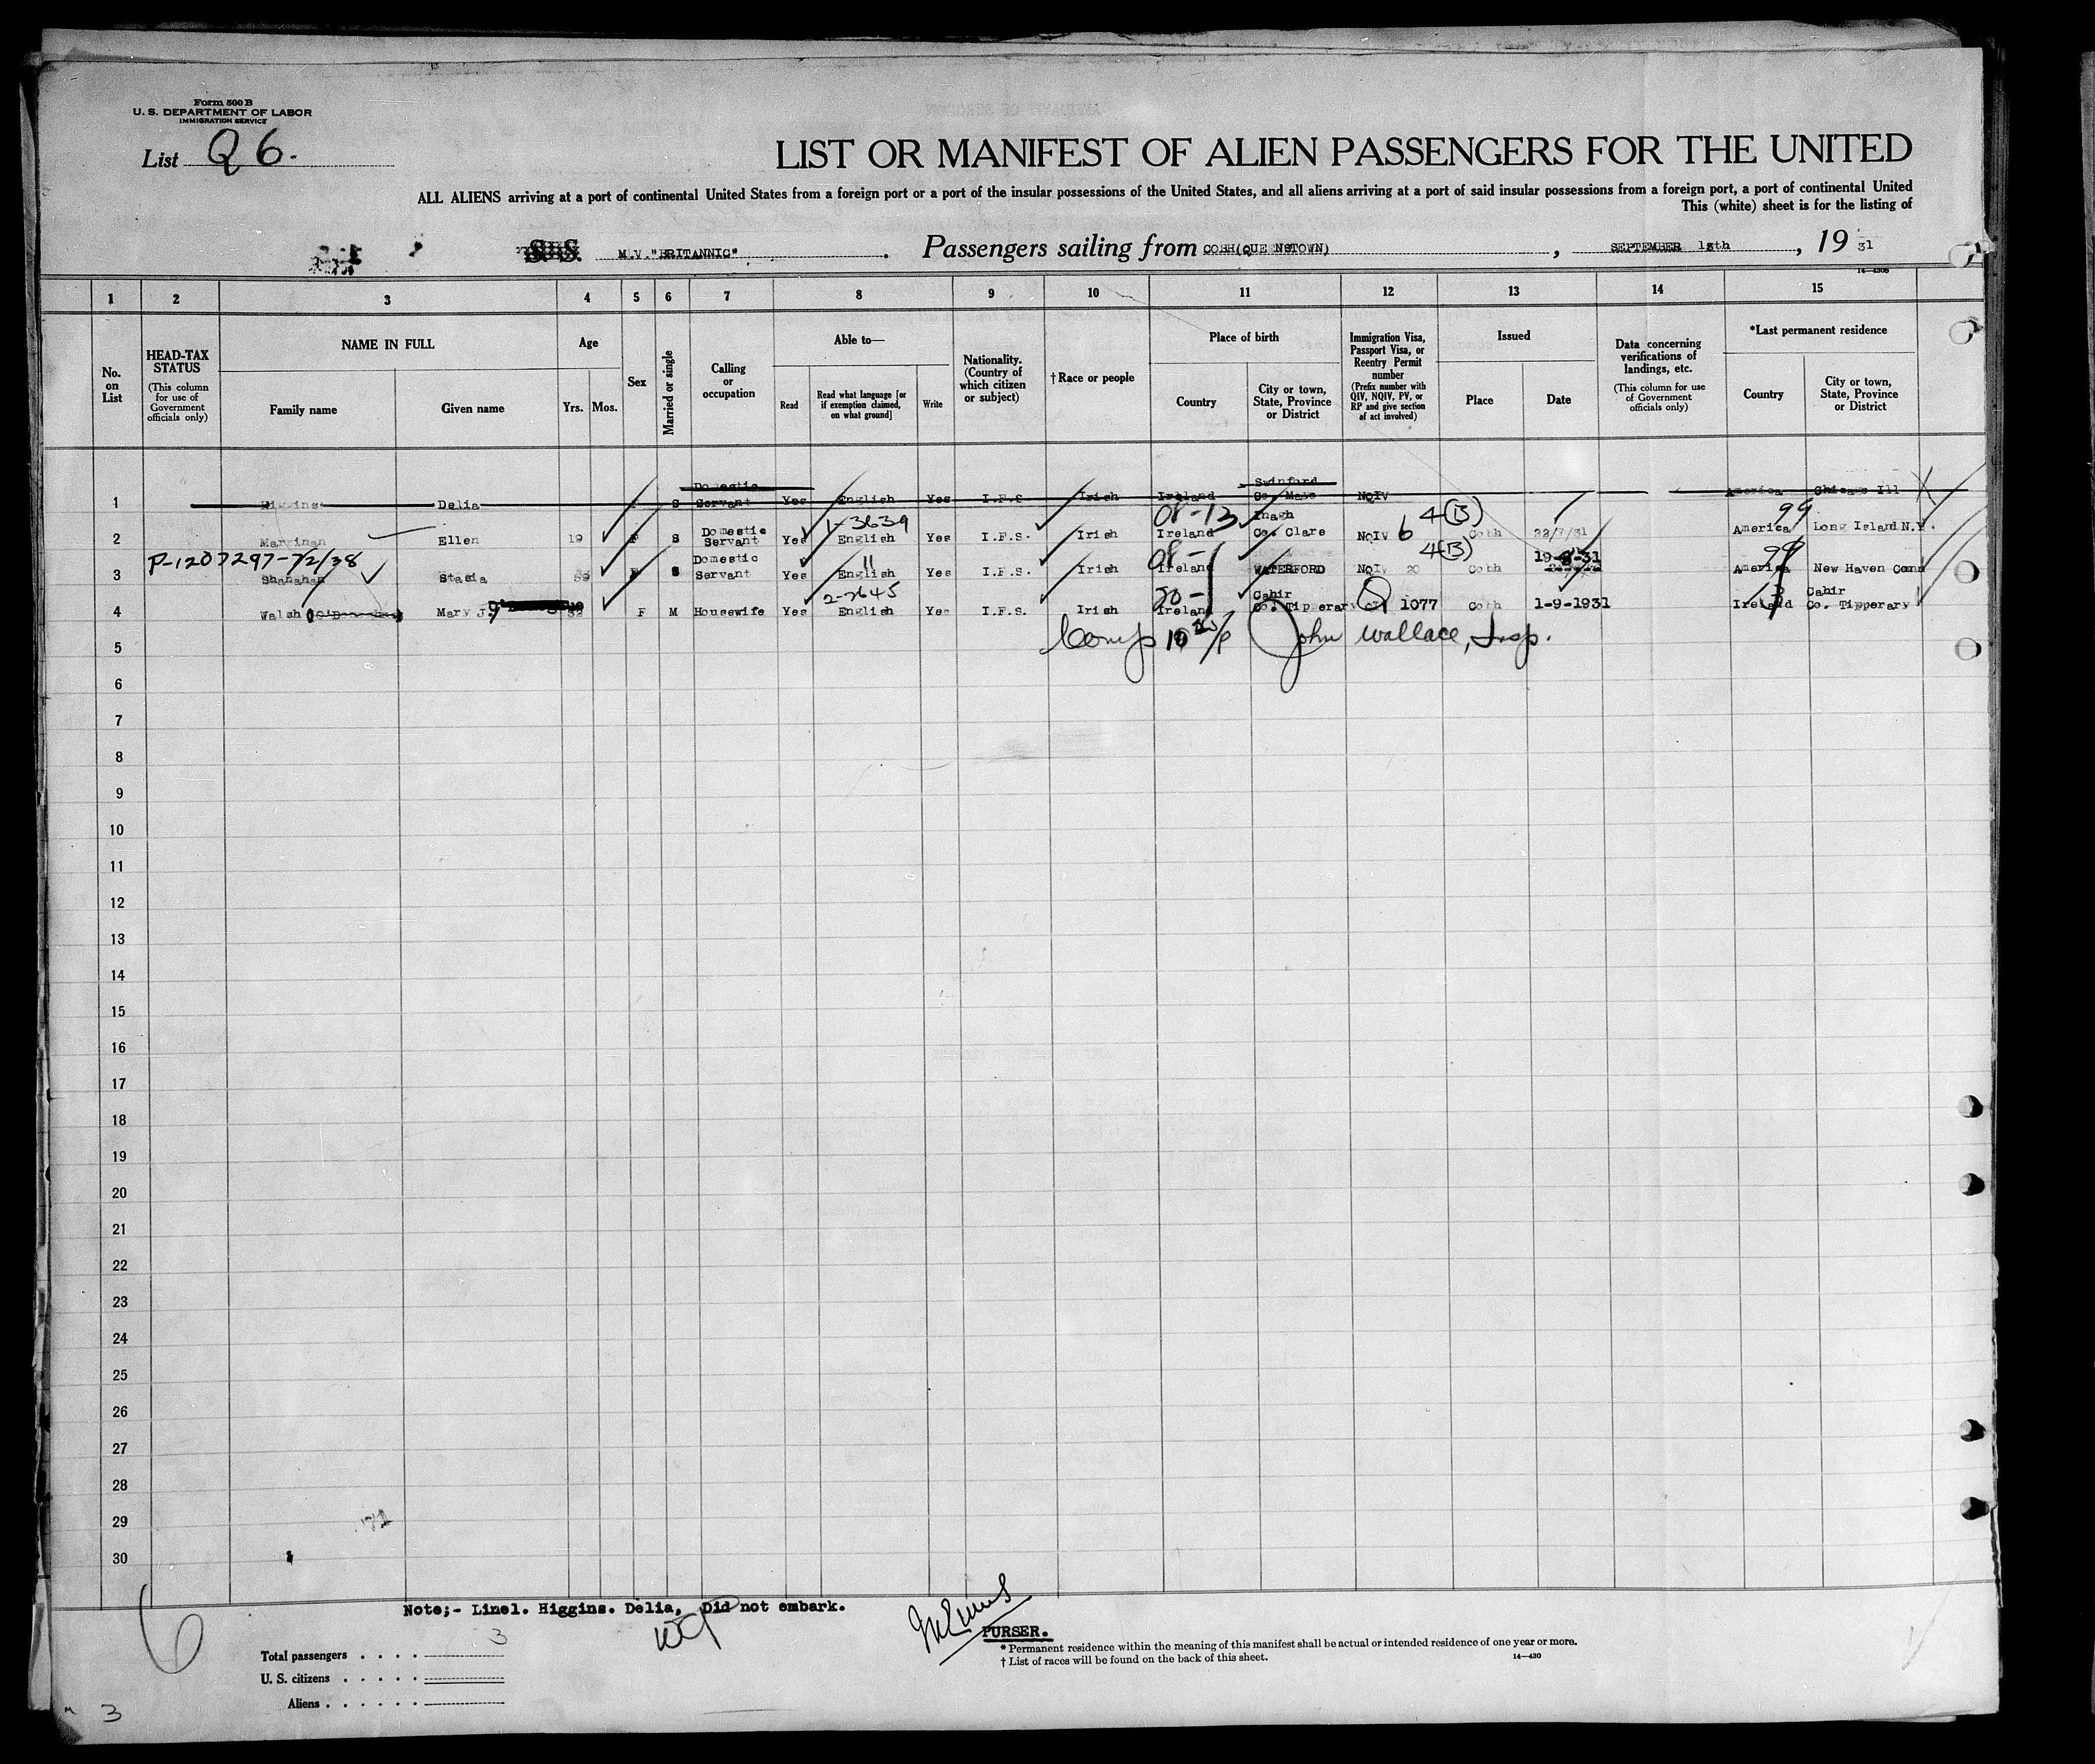 Form 500 B
U. S. DEPARTMENT OF LABOR
IMMIGRATION SERVICE
List Q 6.
LIST OR MANIFEST OF ALIEN PASSENGERS FOR THE UNITED
ALL ALIENS arriving at a port of continental United States from a foreign port or a port of the insular possessions of the United States, and all aliens arriving at a port of said insular possessions from a foreign port, a port of continental United
This (white) sheet is for the listing of
S. S. M.V."BRITANNIC" . Passengers sailing from COBH(QUE NSTOWN) , SEPTEMBER 13th , 19 31
1 2 3 4 5 6 7 8 9 10 11 12 13 14 15
No. on List
HEAD-TAX STATUS (This column for use of Government officials only)
NAME IN FULL
Family name Given name
Age
Yrs. Mos.
Sex
Married or single
Calling or occupation
Able to—
Read Read what language [or if exemption claimed, on what ground] Write
Nationality. (Country of which citizen or subject)
†Race or people
Place of birth
Country City or town, State, Province or District
Immigration Visa, Passport Visa, or Reentry Permit number (Prefix number with QIV, NQIV, PV, or RP and give section of act involved)
Issued
Place Date
Data concerning verifications of landings, etc. (This column for use of Government officials only)
*Last permanent residence
Country City or town, State, Province or District
Domestic Swinford
1 Higgins Delia S Servant Yes English Yes I.F.S Irish Ireland Co. Mayo NQIV America Chicago Ill X
Domestic 1-3639 08-13 Inagh 4(B) 99
2 Marrinan Ellen 19 F S Servant Yes English Yes I.F.S. Irish Ireland Co. Clare NQIV 6 Cobh 22/7/31 America Long Island N.Y.
P-1207297-7/2/38 Domestic 11 08- 4(B) 19-8-31 99
3 Shanahan Stasia F S Servant Yes English Yes I.F.S. Irish Ireland WATERFORD NQIV 20 Cobh America New Haven Conn
2-2645 20- Cahir 3 Cahir
4 Walsh Mary J. 32 F M Housewife Yes English Yes I.F.S. Irish Ireland Co. Tipperary 1077 Cobh 1-9-1931 Ireland Co. Tipperary
5 John Wallace, Insp.
6
7
8
9
10
11
12
13
14
15
16
17
18
19
20
21
22
23
24
25
26
27
28
29
30
6
Note;- Line1. Higgins. Delia, Did not embark.
PURSER.
Total passengers . . . . 3
U. S. citizens . . . . .
Aliens . . . . . .
* Permanent residence within the meaning of this manifest shall be actual or intended residence of one year or more.
† List of races will be found on the back of this sheet.
14—430
3